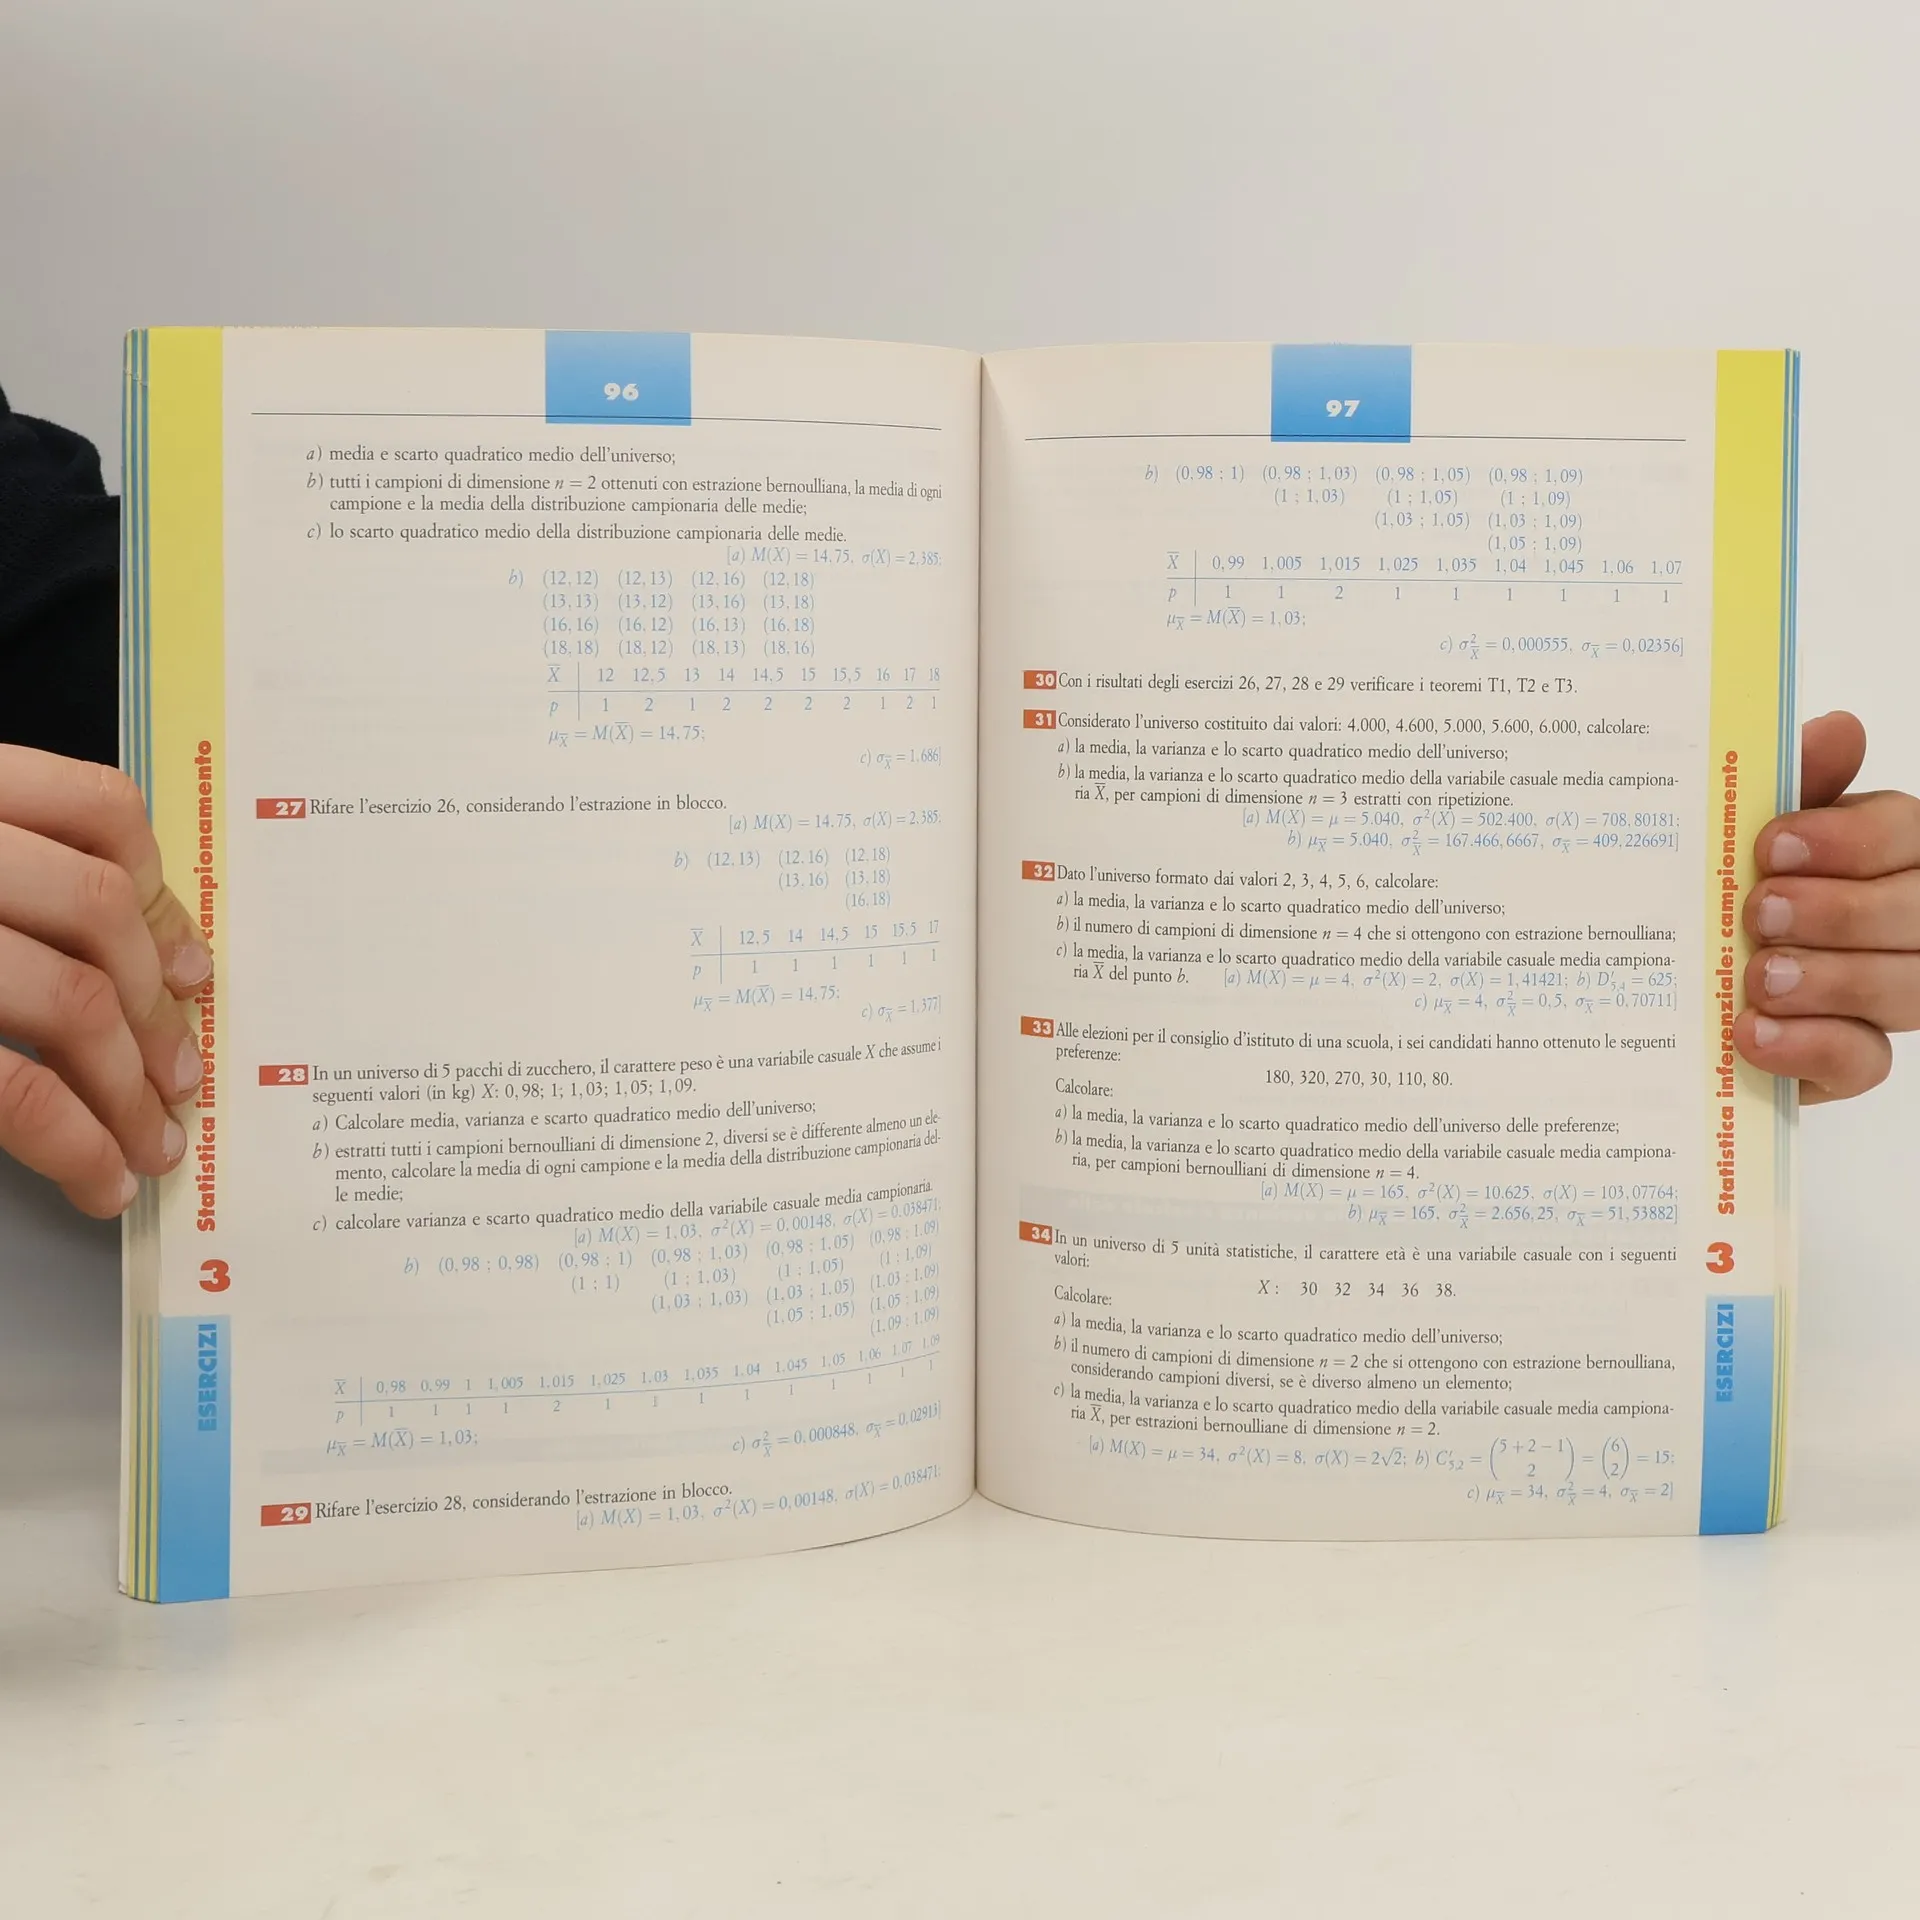 96
a) media e scarto quadratico medio dell'universo;
b) tutti i campioni di dimensione n = 2 ottenuti con estrazione bernoulliana, la media di ogni
campione e la media della distribuzione campionaria delle medie;
c) lo scarto quadratico medio della distribuzione campionaria delle medie.
[a) M(X) = 14,75, σ(X) = 2,385;
b) (12, 12) (12, 13) (12, 16) (12, 18)
(13, 13) (13, 12) (13, 16) (13, 18)
(16, 16) (16, 12) (16, 13) (16, 18)
(18, 18) (18, 12) (18, 13) (18, 16)
X̅ 12 12,5 13 14 14,5 15 15,5 16 17 18
p 1 2 1 2 2 2 2 1 2 1
μX̅ = M(X̅) = 14,75;
c) σX̅ = 1,686]
27 Rifare l'esercizio 26, considerando l'estrazione in blocco.
[a) M(X) = 14,75, σ(X) = 2,385;
b) (12, 13) (12, 16) (12, 18)
(13, 16) (13, 18)
(16, 18)
X̅ 12,5 14 14,5 15 15,5 17
p 1 1 1 1 1 1
μX̅ = M(X̅) = 14,75;
c) σX̅ = 1,377]
28 In un universo di 5 pacchi di zucchero, il carattere peso è una variabile casuale X che assume i
seguenti valori (in kg) X: 0,98; 1; 1,03; 1,05; 1,09.
a) Calcolare media, varianza e scarto quadratico medio dell'universo;
b) estratti tutti i campioni bernoulliani di dimensione 2, diversi se è differente almeno un ele-
mento, calcolare la media di ogni campione e la media della distribuzione campionaria del-
le medie;
c) calcolare varianza e scarto quadratico medio della variabile casuale media campionaria.
[a) M(X) = 1,03, σ²(X) = 0,00148, σ(X) = 0,038471;
b) (0,98 ; 0,98) (0,98 ; 1) (0,98 ; 1,03) (0,98 ; 1,05) (0,98 ; 1,09)
(1 ; 1) (1 ; 1,03) (1 ; 1,05) (1 ; 1,09)
(1,03 ; 1,03) (1,03 ; 1,05) (1,03 ; 1,09)
(1,05 ; 1,05) (1,05 ; 1,09)
(1,09 ; 1,09)
X̅ 0,98 0,99 1 1,005 1,015 1,025 1,03 1,035 1,04 1,045 1,05 1,06 1,07 1,09
p 1 1 1 1 2 1 1 1 1 1 1 1 1 1
μX̅ = M(X̅) = 1,03;
c) σ²X̅ = 0,000848, σX̅ = 0,02913]
29 Rifare l'esercizio 28, considerando l'estrazione in blocco.
[a) M(X) = 1,03, σ²(X) = 0,00148, σ(X) = 0,038471;
3 campionamento
ESERCIZI
97
b) (0,98 ; 1) (0,98 ; 1,03) (0,98 ; 1,05) (0,98 ; 1,09)
(1 ; 1,03) (1 ; 1,05) (1 ; 1,09)
(1,03 ; 1,05) (1,03 ; 1,09)
(1,05 ; 1,09)
X̅ 0,99 1,005 1,015 1,025 1,035 1,04 1,045 1,06 1,07
p 1 1 2 1 1 1 1 1 1
μX̅ = M(X̅) = 1,03;
c) σ²X̅ = 0,000555, σX̅ = 0,02356]
30 Con i risultati degli esercizi 26, 27, 28 e 29 verificare i teoremi T1, T2 e T3.
31 Considerato l'universo costituito dai valori: 4.000, 4.600, 5.000, 5.600, 6.000, calcolare:
a) la media, la varianza e lo scarto quadratico medio dell'universo;
b) la media, la varianza e lo scarto quadratico medio della variabile casuale media campiona-
ria X̅, per campioni di dimensione n = 3 estratti con ripetizione.
[a) M(X) = μ = 5.040, σ²(X) = 502.400, σ(X) = 708,80181;
b) μX̅ = 5.040, σ²X̅ = 167.466,6667, σX̅ = 409,226691]
32 Dato l'universo formato dai valori 2, 3, 4, 5, 6, calcolare:
a) la media, la varianza e lo scarto quadratico medio dell'universo;
b) il numero di campioni di dimensione n = 4 che si ottengono con estrazione bernoulliana;
c) la media, la varianza e lo scarto quadratico medio della variabile casuale media campiona-
ria X̅ del punto b. [a) M(X) = μ = 4, σ²(X) = 2, σ(X) = 1,41421; b) D′5,4 = 625;
c) μX̅ = 4, σ²X̅ = 0,5, σX̅ = 0,70711]
33 Alle elezioni per il consiglio d'istituto di una scuola, i sei candidati hanno ottenuto le seguenti
preferenze:
180, 320, 270, 30, 110, 80.
Calcolare:
a) la media, la varianza e lo scarto quadratico medio dell'universo delle preferenze;
b) la media, la varianza e lo scarto quadratico medio della variabile casuale media campiona-
ria, per campioni bernoulliani di dimensione n = 4.
[a) M(X) = μ = 165, σ²(X) = 10.625, σ(X) = 103,07764;
b) μX̅ = 165, σ²X̅ = 2.656,25, σX̅ = 51,53882]
34 In un universo di 5 unità statistiche, il carattere età è una variabile casuale con i seguenti
valori:
X : 30 32 34 36 38.
Calcolare:
a) la media, la varianza e lo scarto quadratico medio dell'universo;
b) il numero di campioni di dimensione n = 2 che si ottengono con estrazione bernoulliana,
considerando campioni diversi, se è diverso almeno un elemento;
c) la media, la varianza e lo scarto quadratico medio della variabile casuale media campiona-
ria X̅, per estrazioni bernoulliane di dimensione n = 2.
[a) M(X) = μ = 34, σ²(X) = 8, σ(X) = 2√2; b) C′5,2 = (5 + 2 − 1 2) = (6 2) = 15;
c) μX̅ = 34, σ²X̅ = 4, σX̅ = 2]
3 Statistica inferenziale: campionamento
ESERCIZI